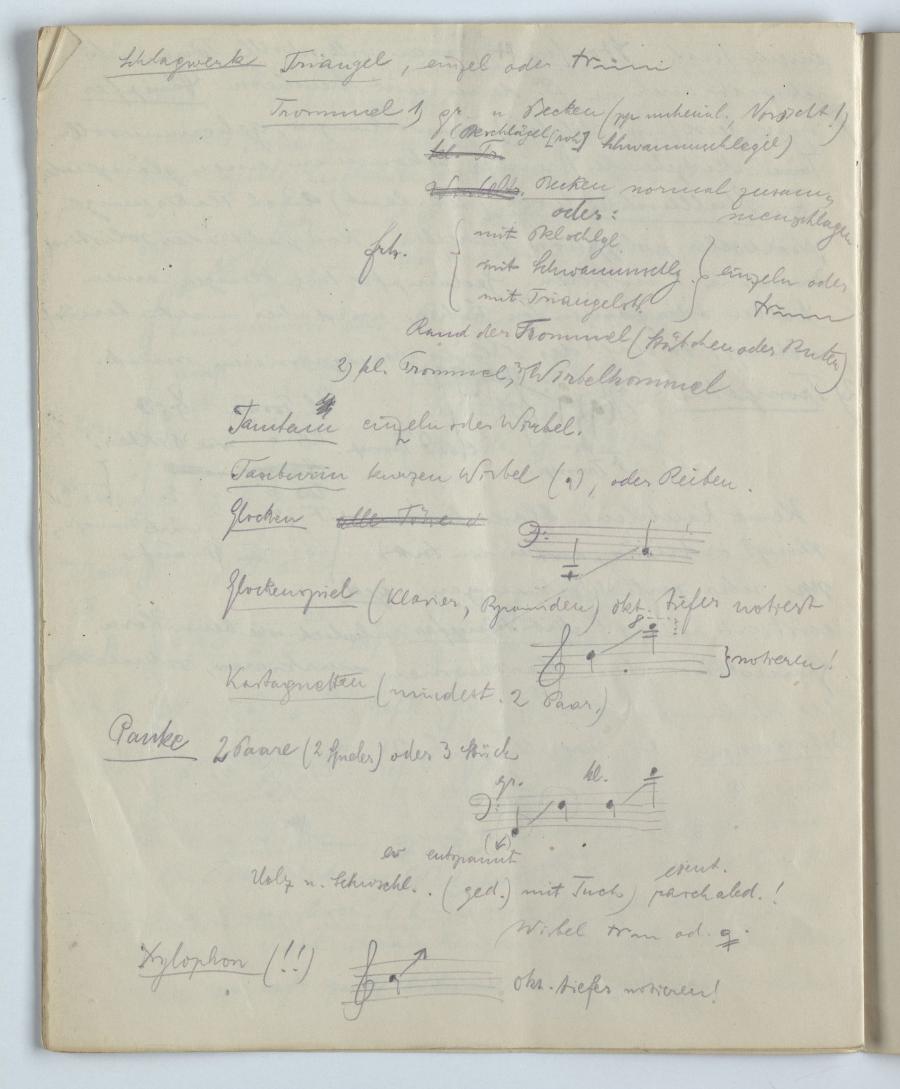 Schlagwerk Triangel, einzel oder
Trommel 1) gr. u Becken (pp unheiml., Vorsicht!)
(Pkschlägel [roh] Schwammschlegel)
kl. Tr
Becken normal zusam=
oder: menschlagen
mit Pkschlgl.
mit Schwammschlg. einzeln oder
mit Triangelstb.
Rand der Trommel (Stäbchen oder Rute)
2) kl. Trommel, 3) Wirbeltrommel
Tamtam einzeln oder Wirbel.
Tamburin kurzen Wirbel, oder Reiben.
Glocken alle Töne
Glockenspiel (Klavier, Pyramiden) okt. tiefer notiert
8
notieren!
Kastagnetten (mindest. 2 Paar.)
Pauke 2 Paare (2 Spieler) oder 3 Stück
gr. kl.
entspannt
Holz u. Schwschl. (ged.) mit Tuch) event.
Wirbel od.
Xylophon (!!) okt. tiefer notieren!